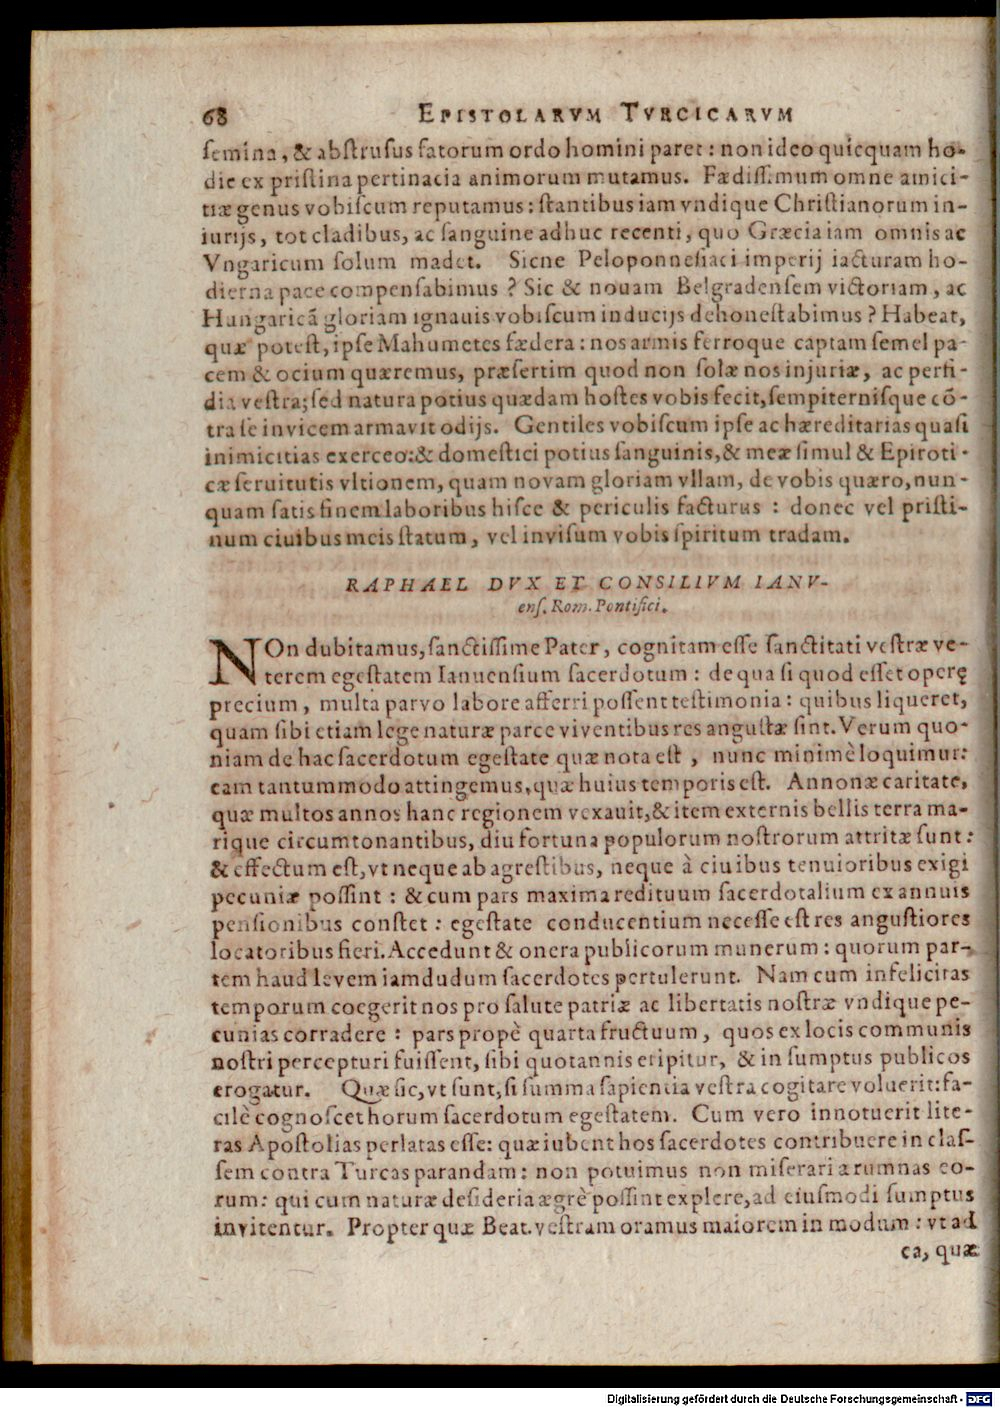 68 EPISTOLARVM TVRCICARVM
ſemina, & abſtruſus fatorum ordo homini paret : non ideo quicquam ho-
die ex priſtina pertinacia animorum mutamus. Fædiſſimum omne amici-
tiæ genus vobiſcum reputamus : ſtantibus iam vndique Chriſtianorum in-
iurijs, tot cladibus, ac ſanguine adhuc recenti, quo Græcia iam omnis ac
Vngaricum ſolum madet. Sicne Peloponneſiaci imperij iacturam ho-
dierna pace compenſabimus ? Sic & nouam Belgradenſem victoriam, ac
Hungaricã gloriam ignauis vobiſcum inducijs dehoneſtabimus ? Habeat,
quæ poteſt, ipſe Mahumetes fædera : nos armis ferroque captam ſemel pa-
cem & ocium quæremus, præſertim quod non ſolæ nos injuriæ, ac perfi-
dia veſtra; ſed natura potius quædam hoſtes vobis fecit, ſempiterniſque cõ-
tra ſe invicem armavit odijs. Gentiles vobiſcum ipſe ac hæreditarias quaſi
inimicitias exerceo: & domeſtici potius ſanguinis, & meæ ſimul & Epiroti-
cæ ſeruitutis vltionem, quam novam gloriam vllam, de vobis quæro, nun-
quam ſatis finem laboribus hiſce & periculis facturus : donec vel priſti-
num ciuibus meis ſtatum, vel inviſum vobis ſpiritum tradam.
RAPHAEL DVX ET CONSILIVM IANV-
enſ. Rom. Pontifici.
NOn dubitamus, ſanctiſſime Pater, cognitam eſſe ſanctitati veſtræ ve-
terem egeſtatem Ianuenſium ſacerdotum : de qua ſi quod eſſet operę
precium, multa parvo labore afferri poſſent teſtimonia : quibus liqueret,
quam ſibi etiam lege naturæ parce viventibus res anguſtæ ſint. Verum quo-
niam de hac ſacerdotum egeſtate quæ nota eſt, nunc minimè loquimur:
eam tantummodo attingemus, quæ huius temporis eſt. Annonæ caritate,
quæ multos annos hanc regionem vexauit, & item externis bellis terra ma-
rique circumtonantibus, diu fortuna populorum noſtrorum attritæ ſunt :
& effectum eſt, vt neque ab agreſtibus, neque à ciuibus tenuioribus exigi
pecuniæ poſſint : & cum pars maxima redituum ſacerdotalium ex annuis
penſionibus conſtet : egeſtate conducentium neceſſe eſt res anguſtiores
locatoribus fieri. Accedunt & onera publicorum munerum : quorum par-
tem haud levem iamdudum ſacerdotes pertulerunt. Nam cum infelicitas
temporum coegerit nos pro ſalute patriæ ac libertatis noſtræ vndique pe-
cunias corradere : pars propè quarta fructuum, quos ex locis communis
noſtri percepturi fuiſſent, ſibi quotannis eripitur, & in ſumptus publicos
erogatur. Quæ ſic, vt ſunt, ſi ſumma ſapientia veſtra cogitare voluerit: fa-
cilè cognoſcet horum ſacerdotum egeſtatem. Cum vero innotuerit lite-
ras Apoſtolias perlatas eſſe: quæ iubent hos ſacerdotes contribuere in claſ-
ſem contra Turcas parandam : non potuimus non miſerari ærumnas eo-
rum : qui cum naturæ deſideria ægrè poſſint explere, ad eiuſmodi ſumptus
invitentur. Propter quæ Beat. veſtram oramus maiorem in modum : vt ad
ea, quæ
Digitalisierung gefördert durch die Deutsche Forschungsgemeinschaft - DFG